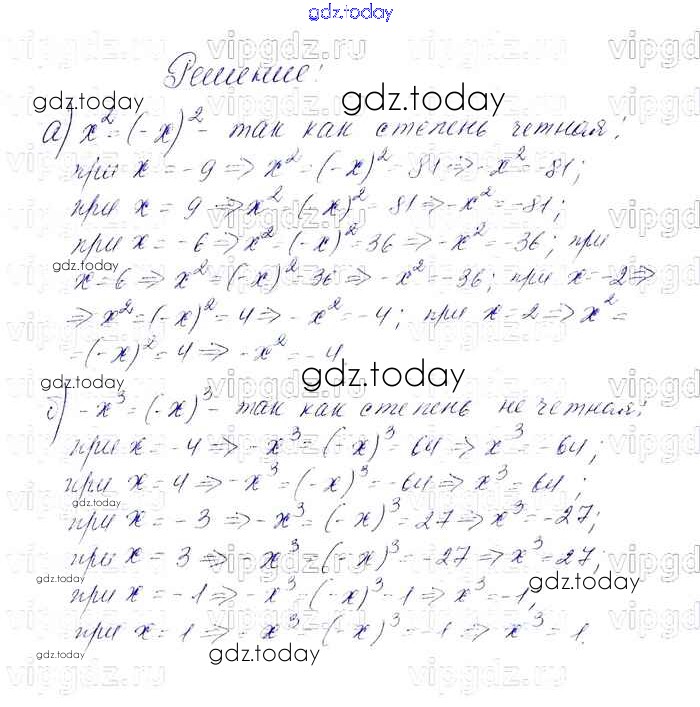 gdz.today
vipgdz.ru
Решение:
gdz.today gdz.today
а) x² = (-x)² - так как степень четная;
при x = -9 => x² = (-x)² = 81 => -x² = -81;
при x = 9 => x² = (-x)² = 81 => -x² = -81;
при x = -6 => x² = (-x)² = 36 => -x² = -36; при
gdz.today
x = 6 => x² = (-x)² = 36 => -x² = -36; при x = -2 =>
=> x² = (-x)² = 4 => -x² = -4; при x = 2 => x² =
= (-x)² = 4 => -x² = -4
gdz.today gdz.today
б) -x³ = (-x)³ - так как степень не четная:
при x = -4 => -x³ = (-x)³ = 64 => x³ = -64;
при x = 4 => -x³ = (-x)³ = -64 => x³ = 64;
gdz.today
при x = -3 => -x³ = (-x)³ = 27 => x³ = -27;
при x = 3 => -x³ = (-x)³ = -27 => x³ = 27,
gdz.today gdz.today
при x = -1 => -x³ = (-x)³ = 1 => x³ = -1,
при x = 1 => -x³ = (-x)³ = -1 => x³ = 1.
gdz.today gdz.today
vipgdz.ru